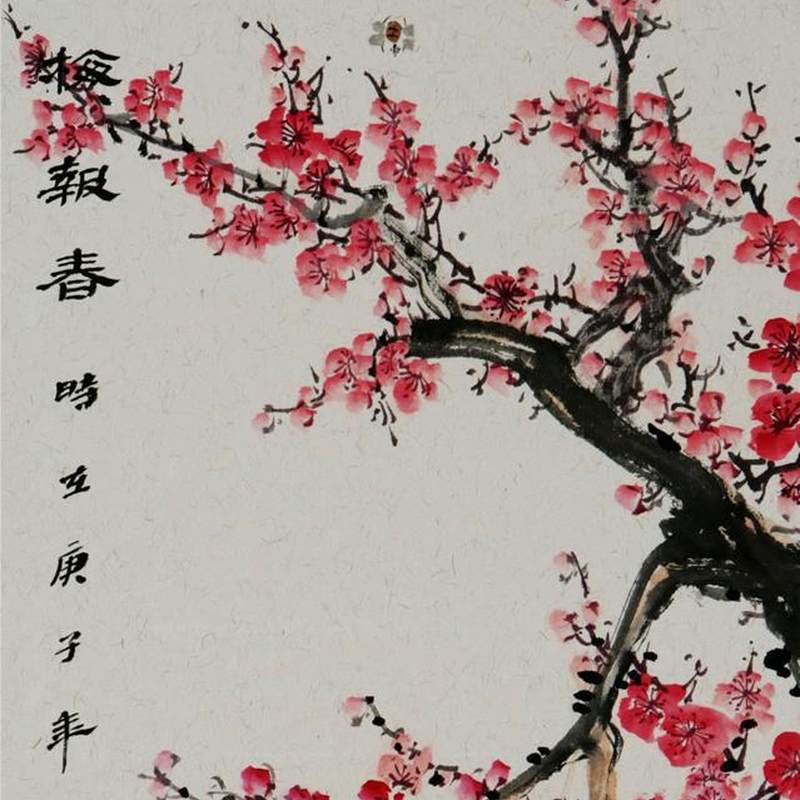 梅報春時在庚子年